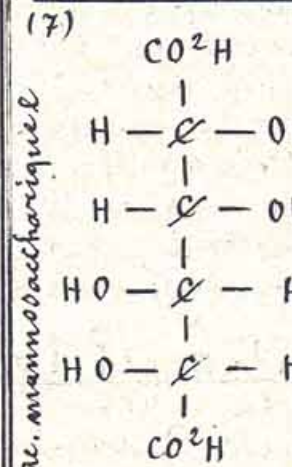 (7)
CO²H
H — C — O
H — C — O
HO — C — H
HO — C — H
CO²H
mannosaccharique